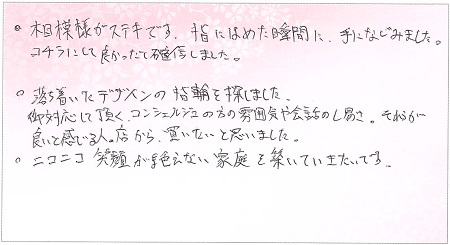 • 相模様がステキです。指にはめた瞬間に、手になじみました。
コチラにして良かったと確信しました。
• 落ち着いたデザインの指輪を探しました。
御対応して頂く、コンシェルジュの方の雰囲気や会話のし易さ。それらが
良いと感じる人。店から、買いたいと思いました。
• ニコニコ 笑顔が絶えない 家庭を築いていきたいです。